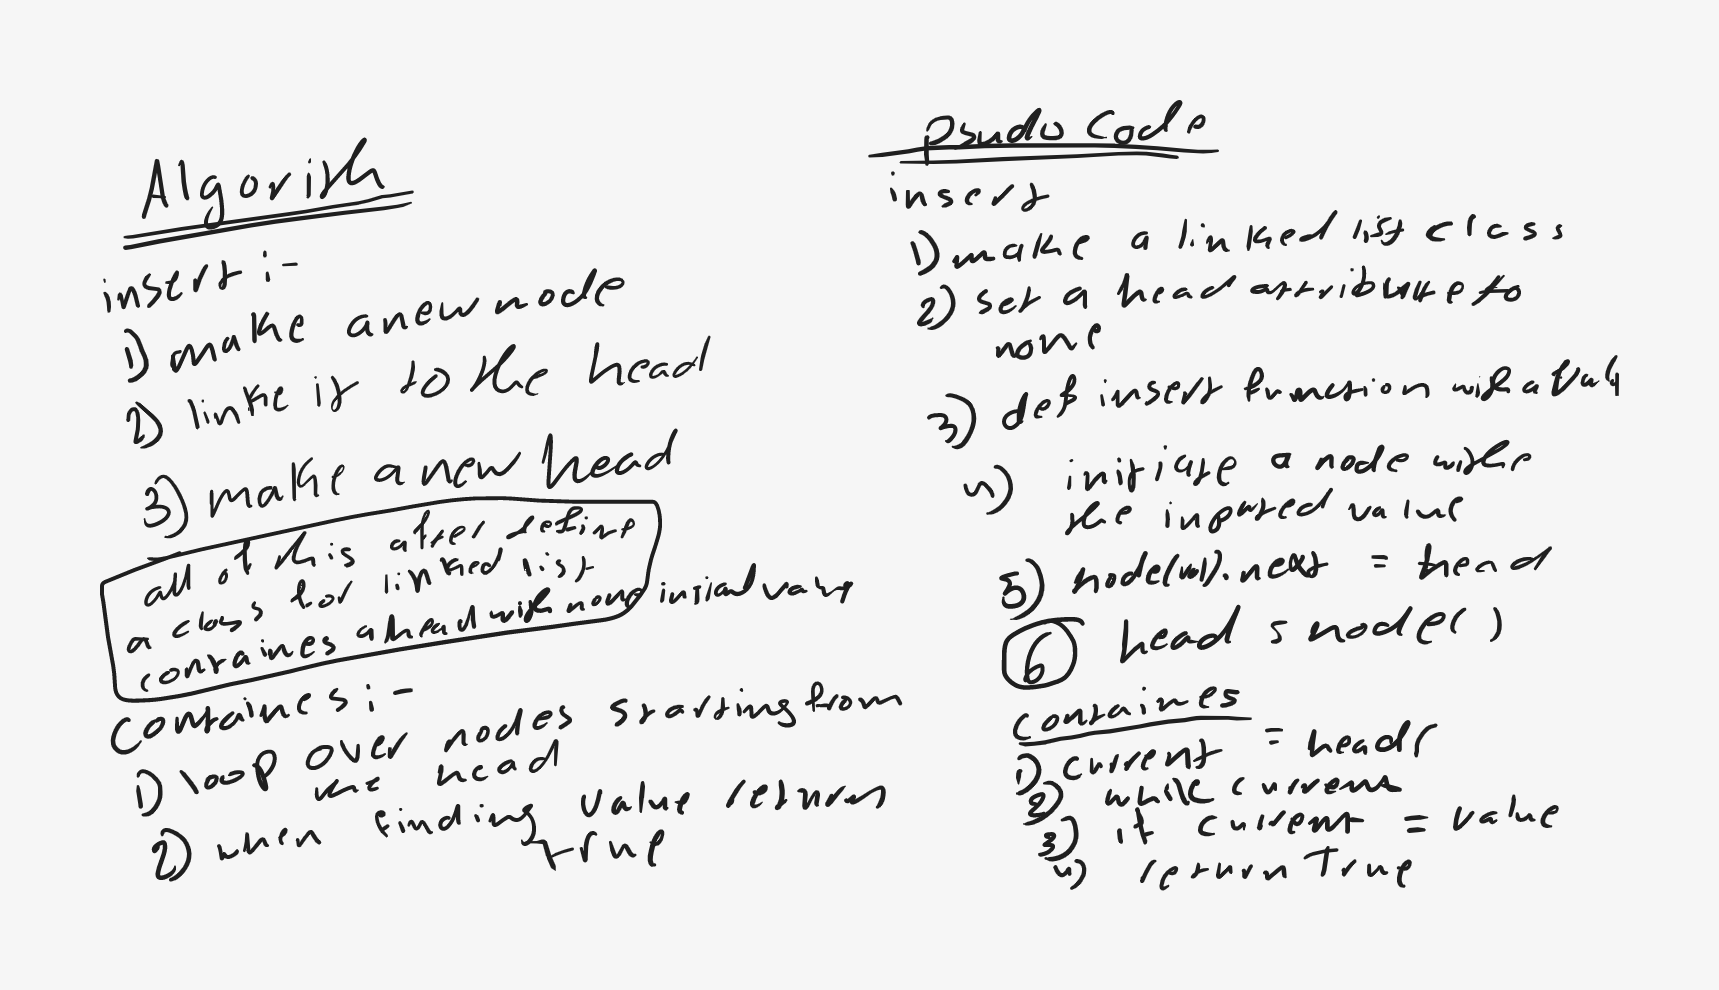 Algorith
insert :-
1) make a new node
2) linke it to the head
3) make a new head
all of this after define
a class for linked list
containes a head with none initial value
containes :-
1) loop over nodes starting from
the head
2) when finding value return
true
psudo code
insert
1) make a linked list class
2) set a head attribute to
none
3) def insert function with a val
4) initiate a node with
the inputed value
5) node(val).next = head
6 head = node()
containes
1) current = head
2) while current
3) if current = value
4) return True